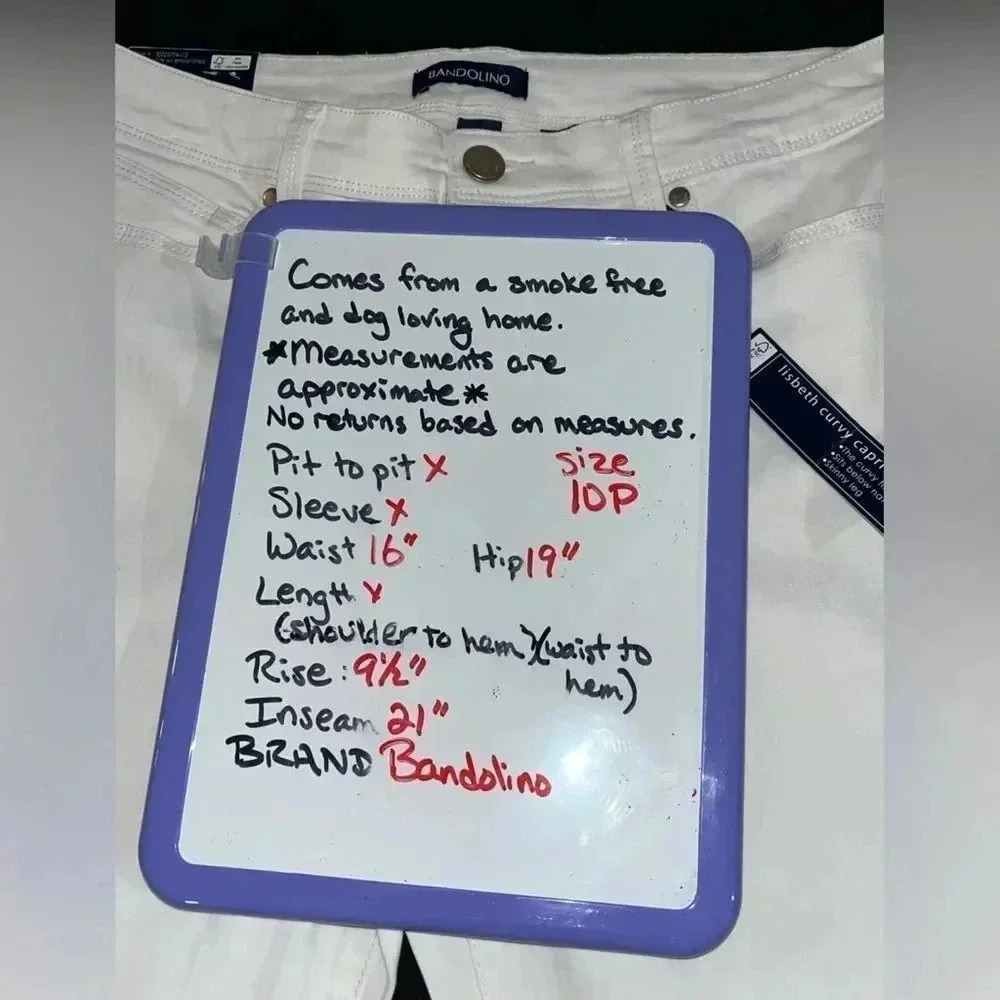 BANDOLINO
Comes from a smoke free
and dog loving home.
*Measurements are
approximate*
No returns based on measures.
Pit to pit X
Size
10P
Sleeve X
Waist 16" Hip 19"
Length X
(shoulder to hem)(waist to
hem)
Rise: 9½"
Inseam 21"
BRAND Bandolino
lisbeth curvy capri
•the curvy
•sits below
•skinny leg